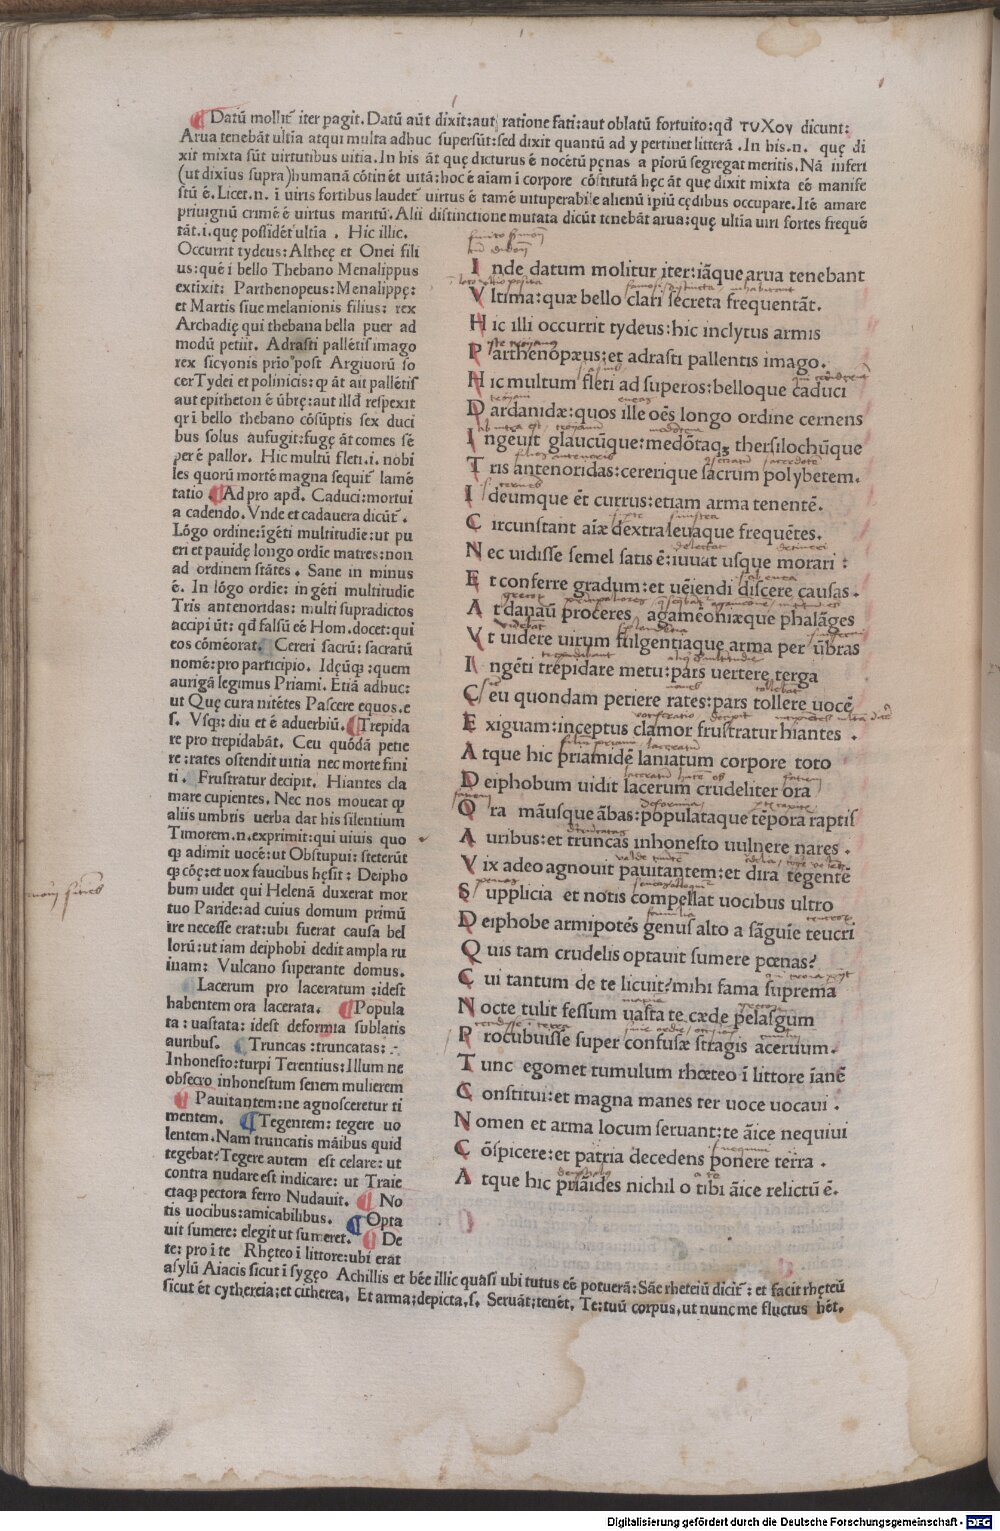 Datū mollit᷑ iter pagit. Datū aūt dixit: aut ratione fati: aut oblatū fortuito: qđ τυΧον dicunt:
Arua tenebāt ultīa atqui multa adhuc supersūt: sed dixit quantū ad y pertinet litterā. In his. n. quę di
xit mixta sūt uirtutibus uitia. In his āt quę dicturus ē nocētū pęnas a piorū segregat meritis. Nā inferi
(ut dixīus supra) humanā cōtinēt uitā: hoc ē aīam ī corpore cōstitutā hęc āt que dixit mixta eē manife
stū ē. Licet. n. ī uiris fortibus laudet᷑ uirtus ē tamē uituperabile alienū īpiū cędibus occupare. Itē amare
priuignū crimē ē uirtus maritū. Alii distinctione mutata dicūt tenebāt arua: quę ultīa uiri fortes frequē
tāt. i. quę possidēt ultīa. Hic illic.
Occurrit tydeus: Altheę et Onei fili
us: quē ī bello Thebano Menalippus
extixit: Parthenopeus: Menalippę:
et Martis siue melanionis filius: rex
Archadię qui thebana bella puer ad
modū petiit. Adrasti pallētis imago
rex sicyonis prio᷑ post Argiuorū so
cer Tydei et polinicis: ꝙ āt ait pallētis
aut epitheton ē ūbrę: aut illđ respexit
qr ī bello thebano cōsūptis sex duci
bus solus aufugit: fugę āt comes sē
per ē pallor. Hic multū fleti. i. nobi
les quorū mortē magna sequit᷑ lamē
tatio. Ad pro apđ. Caduci: mortui
a cadendo. Vnde et cadauera dicūt᷑.
Lōgo ordine: īgēti multitudīe: ut pu
eri et pauidę longo ordīe matres: non
ad ordinem stātes. Sane in minus
ē. In lōgo ordīe: in gēti multitudīe
Tris antenoridas: multi supradictos
accipiūt: qđ falsū eē Hom. docet: qui
eos cōmēorat. Cereri sacrū: sacratū
nomē: pro participio. Idęūꝗ: quem
aurigā legimus Priami. Etiā adhuc:
ut Quę cura nitētes Pascere equos. e
s. Vsꝗ: diu et ē aduerbiū. Trepida
re pro trepidabāt. Ceu quōdā petie
re: rates ostendit uitia nec morte fini
ti. Frustratur decipit. Hiantes cla
mare cupientes. Nec nos moueat ꝙ
aliis umbris uerba dat his silentium
Timorem. n. exprimit: qui uiuis quo
ꝙ adimit uocē: ut Obstupui: steterūt
ꝙ cōę: et uox faucibus hęsit: Deipho
bum uidet qui Helenā duxerat mor
tuo Paride: ad cuius domum primū
ire necesse erat: ubi fuerat causa bel
lorū: ut iam deiphobi dedit ampla ru
inam: Vulcano superante domus.
Lacerum pro laceratum: idest
habentem ora lacerata. Popula
ta: uastata: idest deformia sublatis
auribus. Truncas: truncatas:
Inhonesto: turpi Terentius: Illum ne
obsecro inhonestum senem mulierem
Pauitantem: ne agnosceretur ti
mentem. Tegentem: tegere uo
lentem. Nam truncatis māibus quid
tegebat? Tegere autem est celare: ut
contra nudare est indicare: ut Traie
ctaꝗ pectora ferro Nudauit. No
tis uocibus: amicabilibus. Opta
uit sumere: elegit ut sumeret. De
te: pro ī te Rhęteo ī littore: ubi erat
asylū Aiacis sicut ī sygęo Achillis et bēe illic quasi ubi tutus eē potuerā: Sāe rheteiū dicit᷑: et facit rhęteū
sicut ēt cythereia: et citherea. Et arma: depicta. s. Seruāt: tenēt. Te: tuū corpus, ut nunc me fluctus hēt.
Inde datum molitur iter: iāque arua tenebant
Vltima: quæ bello clari secreta frequentāt.
Hic illi occurrit tydeus: hic inclytus armis
Parthenopæus: et adrasti pallentis imago.
Hic multum fleti ad superos: belloque caduci
Dardanidæ: quos ille oēs longo ordine cernens
Ingeuit glaucūque: medōtaqꝫ thersilochūque
Tris antenoridas: cererique sacrum polybetem.
Ideumque ēt currus: etiam arma tenentē.
Circunstant aīæ dextra leuaque frequētes.
Nec uidisse semel satis ē: iuuat usque morari:
Et conferre gradum: et ueīendi discere causas.
At danaū proceres agamēoniæque phalāges
Vt uidere uirum fulgentiaque arma per ūbras
Ingēti trepidare metu: pars uertere terga
Ceu quondam petiere rates: pars tollere uocē
Exiguam: inceptus clamor frustratur hiantes.
Atque hic priamidē laniatum corpore toto
Deiphobum uidit lacerum crudeliter ora
Ora māusque ābas: populataque tēpora raptis
Auribus: et truncas inhonesto uulnere nares.
Vix adeo agnouit pauitantem: et dira tegentē
Supplicia et notis compellat uocibus ultro
Deiphobe armipotēs genus alto a sāguīe teucri
Quis tam crudelis optauit sumere pœnas?
Cui tantum de te licuit? mihi fama suprema
Nocte tulit fessum uasta te cæde pelasgum
Procubuisse super confusæ stragis aceruum.
Tunc egomet tumulum rhœteo ī littore īanē
Constitui: et magna manes ter uoce uocaui.
Nomen et arma locum seruant: te āice nequiui
Cōspicere: et patria decedens ponere terra.
Atque hic priāides nichil o tibi āice relictū ē.
Digitalisierung gefördert durch die Deutsche Forschungsgemeinschaft - DFG